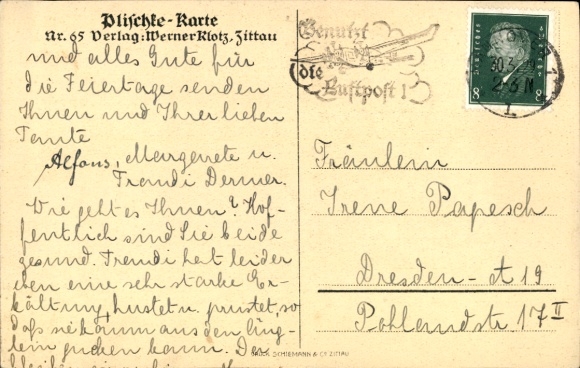 Plischke-Karte
Nr. 65 Verlag: Werner Klotz, Zittau
und alles Gute für
die Feiertage senden
Ihnen und Ihrer lieben
Tante
Alfons, Margarete u.
Traudi
Wie geht es Ihnen? Hof-
fentlich sind Sie beide
gesund. Traudi hat leider
eben eine sehr starke Er-
kältung, hustet u. prustet, so
daß sie kaum aus den Äug-
lein gucken kann. Da
Benutzt
die
Luftpost!
Deutsches Reich
8 8
30.3.
2-3 N
1
Fräulein
Irene Papesch
Dresden-A 19
Pohlandstr 17 II
DRUCK SCHIEMANN & CO. ZITTAU